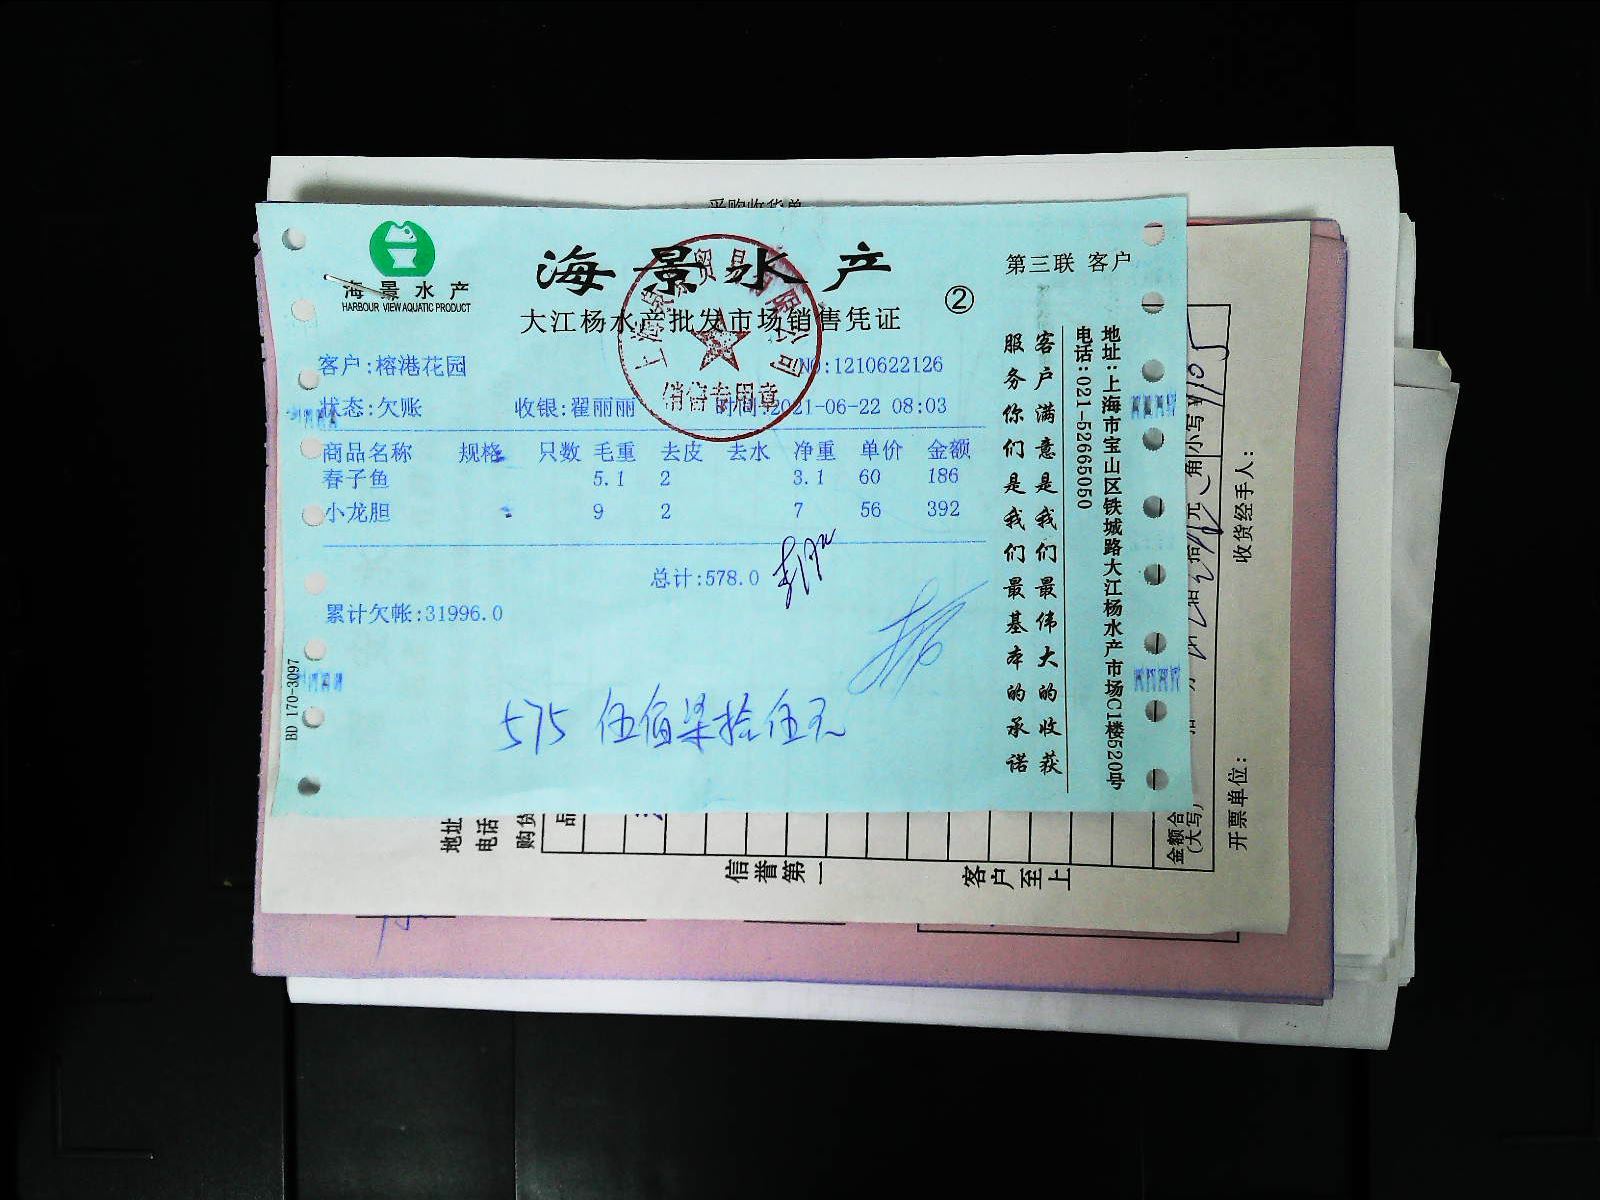 采购收货单
海景水产
HARBOUR VIEW AQUATIC PRODUCT
海景水产
大江杨水产批发市场销售凭证
②
第三联 客户
客户:榕港花园
NO:1210622126
状态:欠账 收银:翟丽丽 时间:2021-06-22 08:03
销售专用章
商品名称 规格 只数 毛重 去皮 去水 净重 单价 金额
春子鱼 5.1 2 3.1 60 186
小龙胆 9 2 7 56 392
总计:578.0
累计欠帐:31996.0
575 伍佰柒拾伍元
BD 170-3097
客户满意是我们最伟大的收获
服务你们是我们最基本的承诺
地址:上海市宝山区铁城路大江杨水产市场C1楼520号
电话:021-52665050
地址
电话
购货
品
信誉第一
客户至上
金额合
(大写)
元
角小写¥
收货经手人:
开票单位: